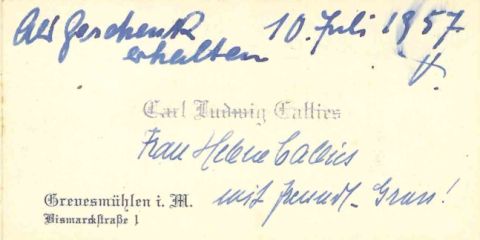 Als Geschenk 10. Juli 1957
erhalten
Carl Ludwig Callies
Frau Helene Callies
mit freundl. Gruss!
Grevesmühlen i. M.
Bismarckstraße 1